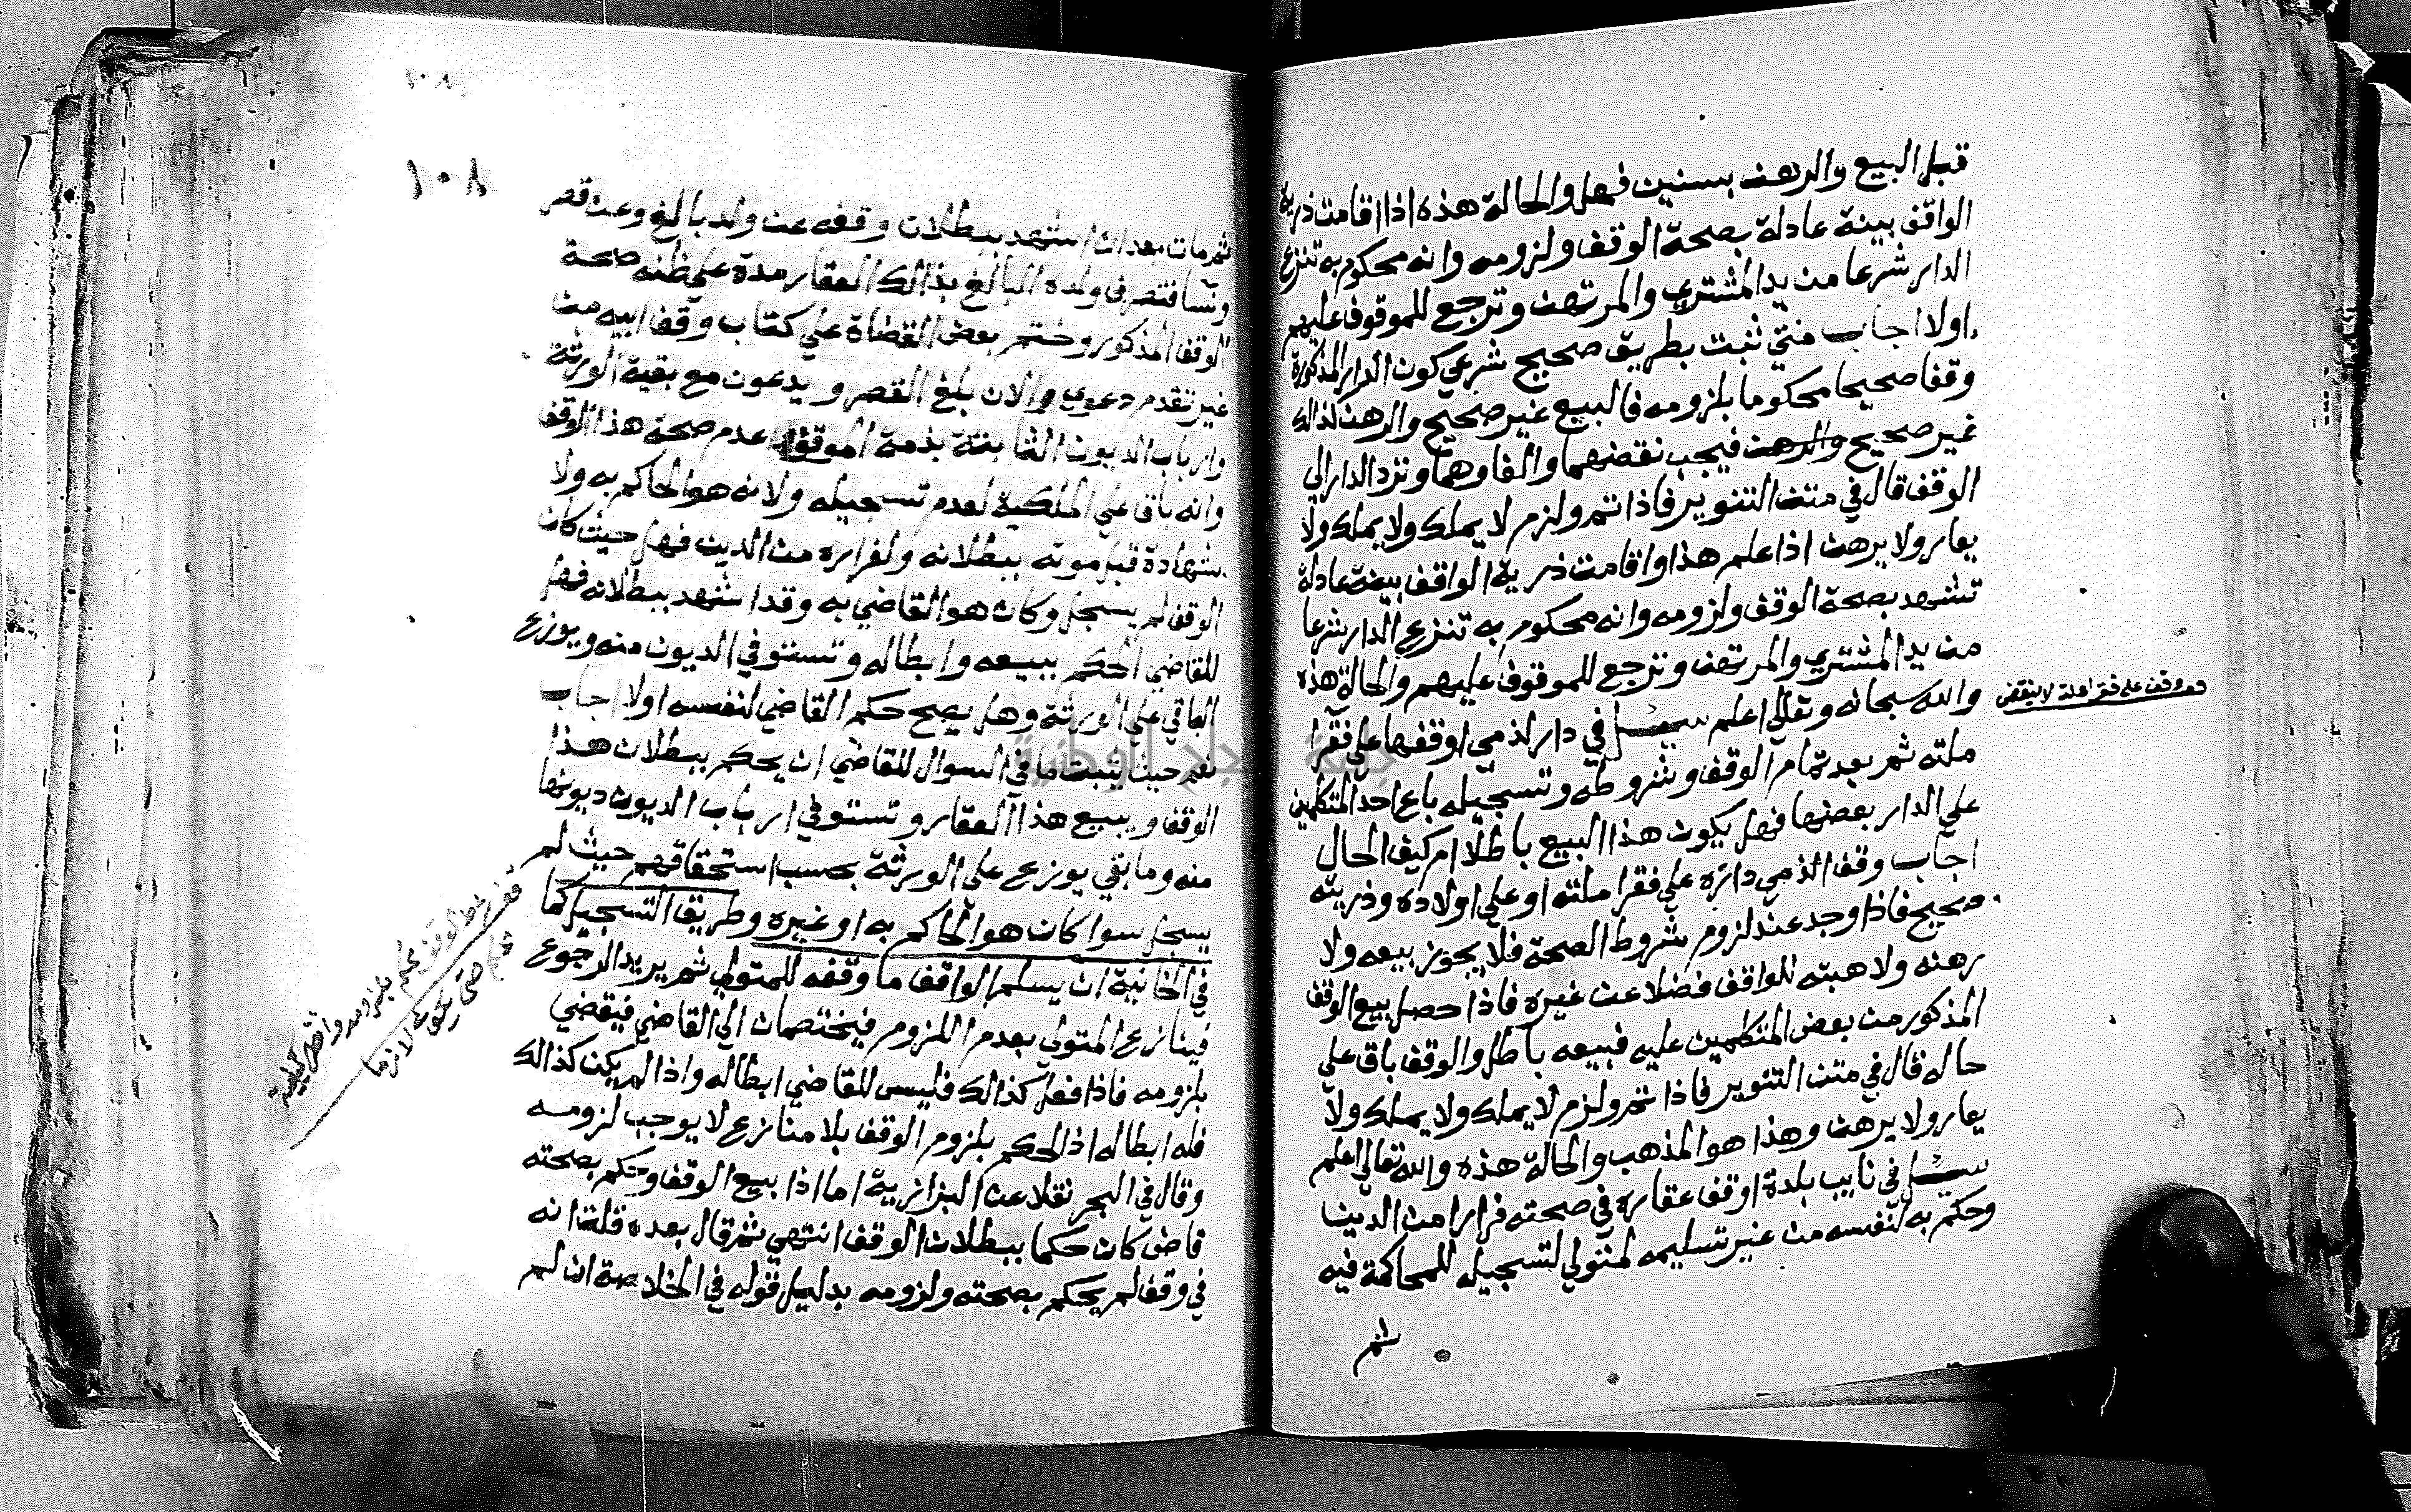 قبل البيع والرهن بسنين فهل والحالة هذه اذا اقامت ذرية
الواقف بينة عادلة بصحة الوقف ولزومه وانه محكوم به تنزع
الدار شرعا من يد المشتري والمرتهن وترجع للموقوف عليهم
اولا اجاب متي ثبت بطريق صحيح شرعي كون الدار المذكورة
وقفا صحيحا محكوما بلزومه فالبيع غير صحيح والرهن كذالك
غير صحيح والرهن فيجب نقضهما والغاوهما وترد الدار الي
الوقف قال في متن التنوير فاذا تم ولزم لا يملك ولا يملك ولا
يعار ولا يرهن اذا علم هذا واقامت ذرية الواقف بينة عادلة
تشهد بصحة الوقف ولزومه وانه محكوم به تنزع الدار شرعا
من يد المشتري والمرتهن وترجع للموقوف عليهم والحالة هذه
والله سبحانه وتعالي اعلم سئل في دار لذمي اوقفها علي فقرا
ملته ثم بعد تمام الوقف وشروطه وتسجيله باع احد المتكلمين
علي الدار بعضها فهل يكون هذا البيع باطلا ام كيف الحال
اجاب وقف الذمي داره علي فقرا ملته او علي اولاده وذريته
صحيح فاذا وجد عند لزوم شروط الصحة فلا يجوز بيعه ولا
رهنه ولا هبته للواقف فضلا عن غيره فاذا حصل بيع الوقف
المذكور من بعض المتكلمين عليه فبيعه باطل والوقف باق علي
حاله قال في متن التنوير فاذا تم ولزم لا يملك ولا يملك ولا
يعار ولا يرهن وهذا هو المذهب والحالة هذه والله تعالي اعلم
سئل في نايب بلدة اوقف عقاره في صحته فرارا من الدين
وحكم به لنفسه من غير تسليمه لمتولي لتسجيله للمحاكمة فيه
ثم
وقف علي فقرا ملته لا ينقض
١٠٨
١٠٨
ثم مات بعد ان اشهد ببطلان وقفه عن ولد بالغ وعن قصر
ونسا فتصرف ولده البالغ بذالك العقار مدة علي ظنه صحة
الوقف المذكور وختم بعض القضاة علي كتاب وقف ابيه من
غير تقدم دعوي والان بلغ القصر ويدعون مع بقية الورثة
وارباب الديون الثابتة بذمة الموقف عدم صحة هذا الوقف
وانه باق علي الملكية لعدم تسجيله ولانه هو الحاكم به ولا
شهادة قبل موته ببطلانه ولفراره من الدين فهل حيث كان
الوقف لم يسجل وكان هو القاضي به وقد اشهد ببطلانه فهل
للقاضي الحكم ببيعه وابطاله وتستوفي الديون منه ويوزع
الباقي علي الورثة وهل يصح حكم القاضي لنفسه اولا اجاب
نعم حيث يثبت ما في السوال للقاضي ان يحكم ببطلان هذا
الوقف ويبيع هذا العقار وتستوفي ارباب الديون ديونها
منه وما بقي يوزع علي الورثة بحسب استحقاقهم حيث لم
يسجل سوا كان هو الحاكم به او غيره وطريق التسجيل كما
في الخانية ان يسلم الواقف ما وقفه للمتولي ثم يريد الرجوع
فينازع المتولي بعدم اللزوم فيختصمان الي القاضي فيقضي
بلزومه فاذا فعل كذالك فليس للقاضي ابطاله واذا لم يكن كذالك
فله ابطاله اذ الحكم بلزوم الوقف بلا منازع لا يوجب لزومه
وقال في البحر نقلا عن البزازية اما اذا بيع الوقف وحكم بصحته
قاض كان حكما ببطلان الوقف انتهي ثم قال بعده قلت انه
في وقف لم يحكم بصحته ولزومه بدليل قوله في الخلاصة ان لم